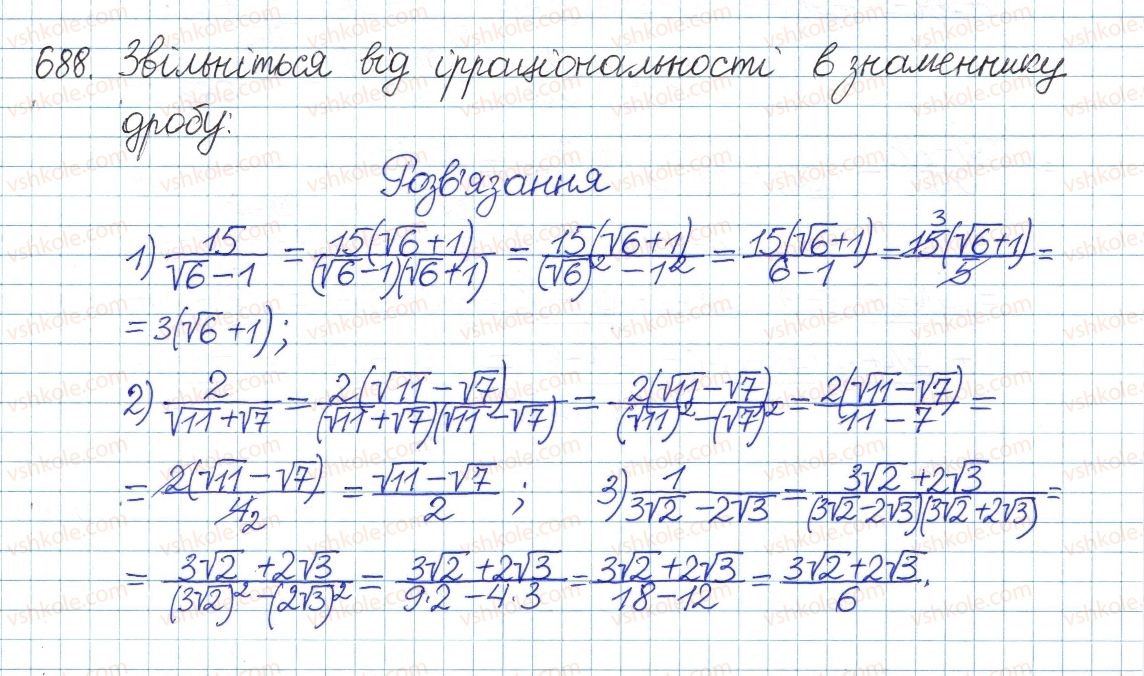 688. Звільніться від ірраціональності в знаменнику
дробу:
Розв'язання
1) 15/(√6−1) = 15(√6+1)/((√6−1)(√6+1)) = 15(√6+1)/((√6)²−1²) = 15(√6+1)/(6−1) = 15³(√6+1)/5 =
= 3(√6+1);
2) 2/(√11+√7) = 2(√11−√7)/((√11+√7)(√11−√7)) = 2(√11−√7)/((√11)²−(√7)²) = 2(√11−√7)/(11−7) =
= 2(√11−√7)/4₂ = (√11−√7)/2; 3) 1/(3√2−2√3) = (3√2+2√3)/((3√2−2√3)(3√2+2√3)) =
= (3√2+2√3)/((3√2)²−(2√3)²) = (3√2+2√3)/(9·2−4·3) = (3√2+2√3)/(18−12) = (3√2+2√3)/6.